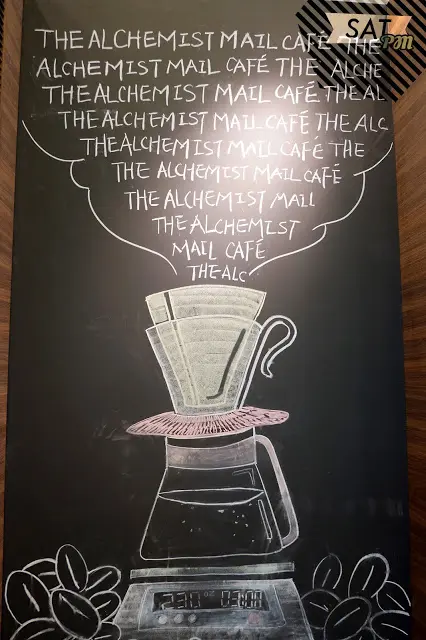 THE ALCHEMIST MAIL CAFÉ THE
ALCHEMIST MAIL CAFÉ THE ALCHE
THE ALCHEMIST MAIL CAFÉ THE AL
THE ALCHEMIST MAIL CAFÉ THE ALC
THE ALCHEMIST MAIL CAFÉ THE
THE ALCHEMIST MAIL CAFÉ
THE ALCHEMIST MAIL
THE ALCHEMIST
MAIL CAFÉ
THE ALC
SAT
Pon